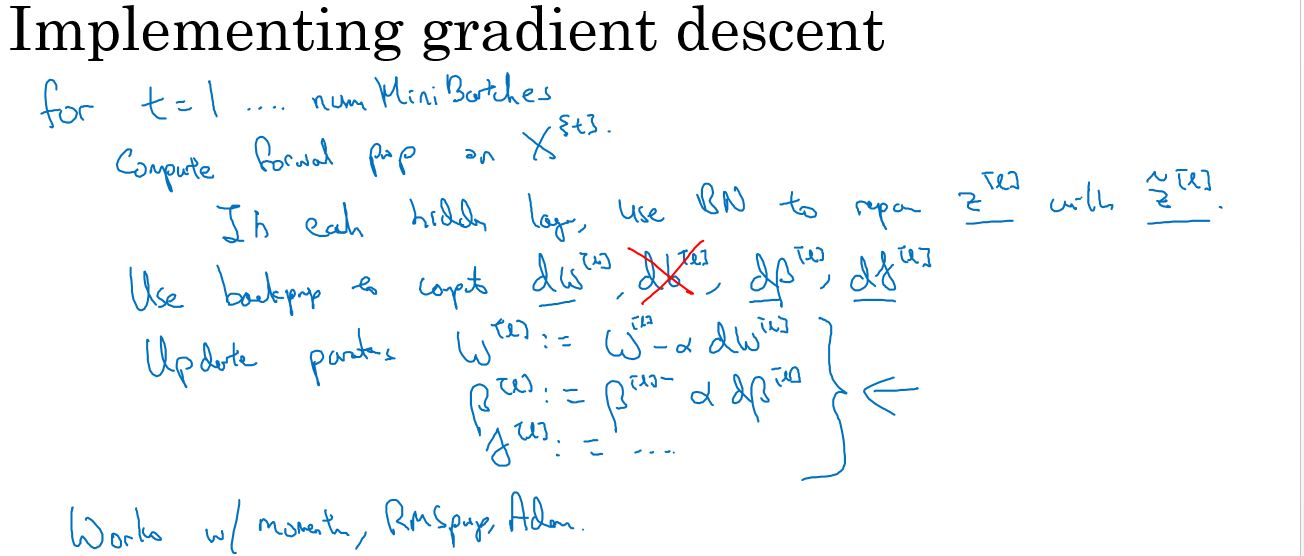 Implementing gradient descent
for t = 1 .... num Mini Batches
Compute forward prop on X^{t}.
In each hidden layer, use BN to repar z^[l] with z̃^[l].
Use backprop to compute dw^[l], db^[l], dβ^[l], dγ^[l]
Update params W^[l] := W^[l] - α dW^[l]
β^[l] := β^[l] - α dβ^[l]
γ^[l] := ....
Works w/ momentum, RMSprop, Adam.